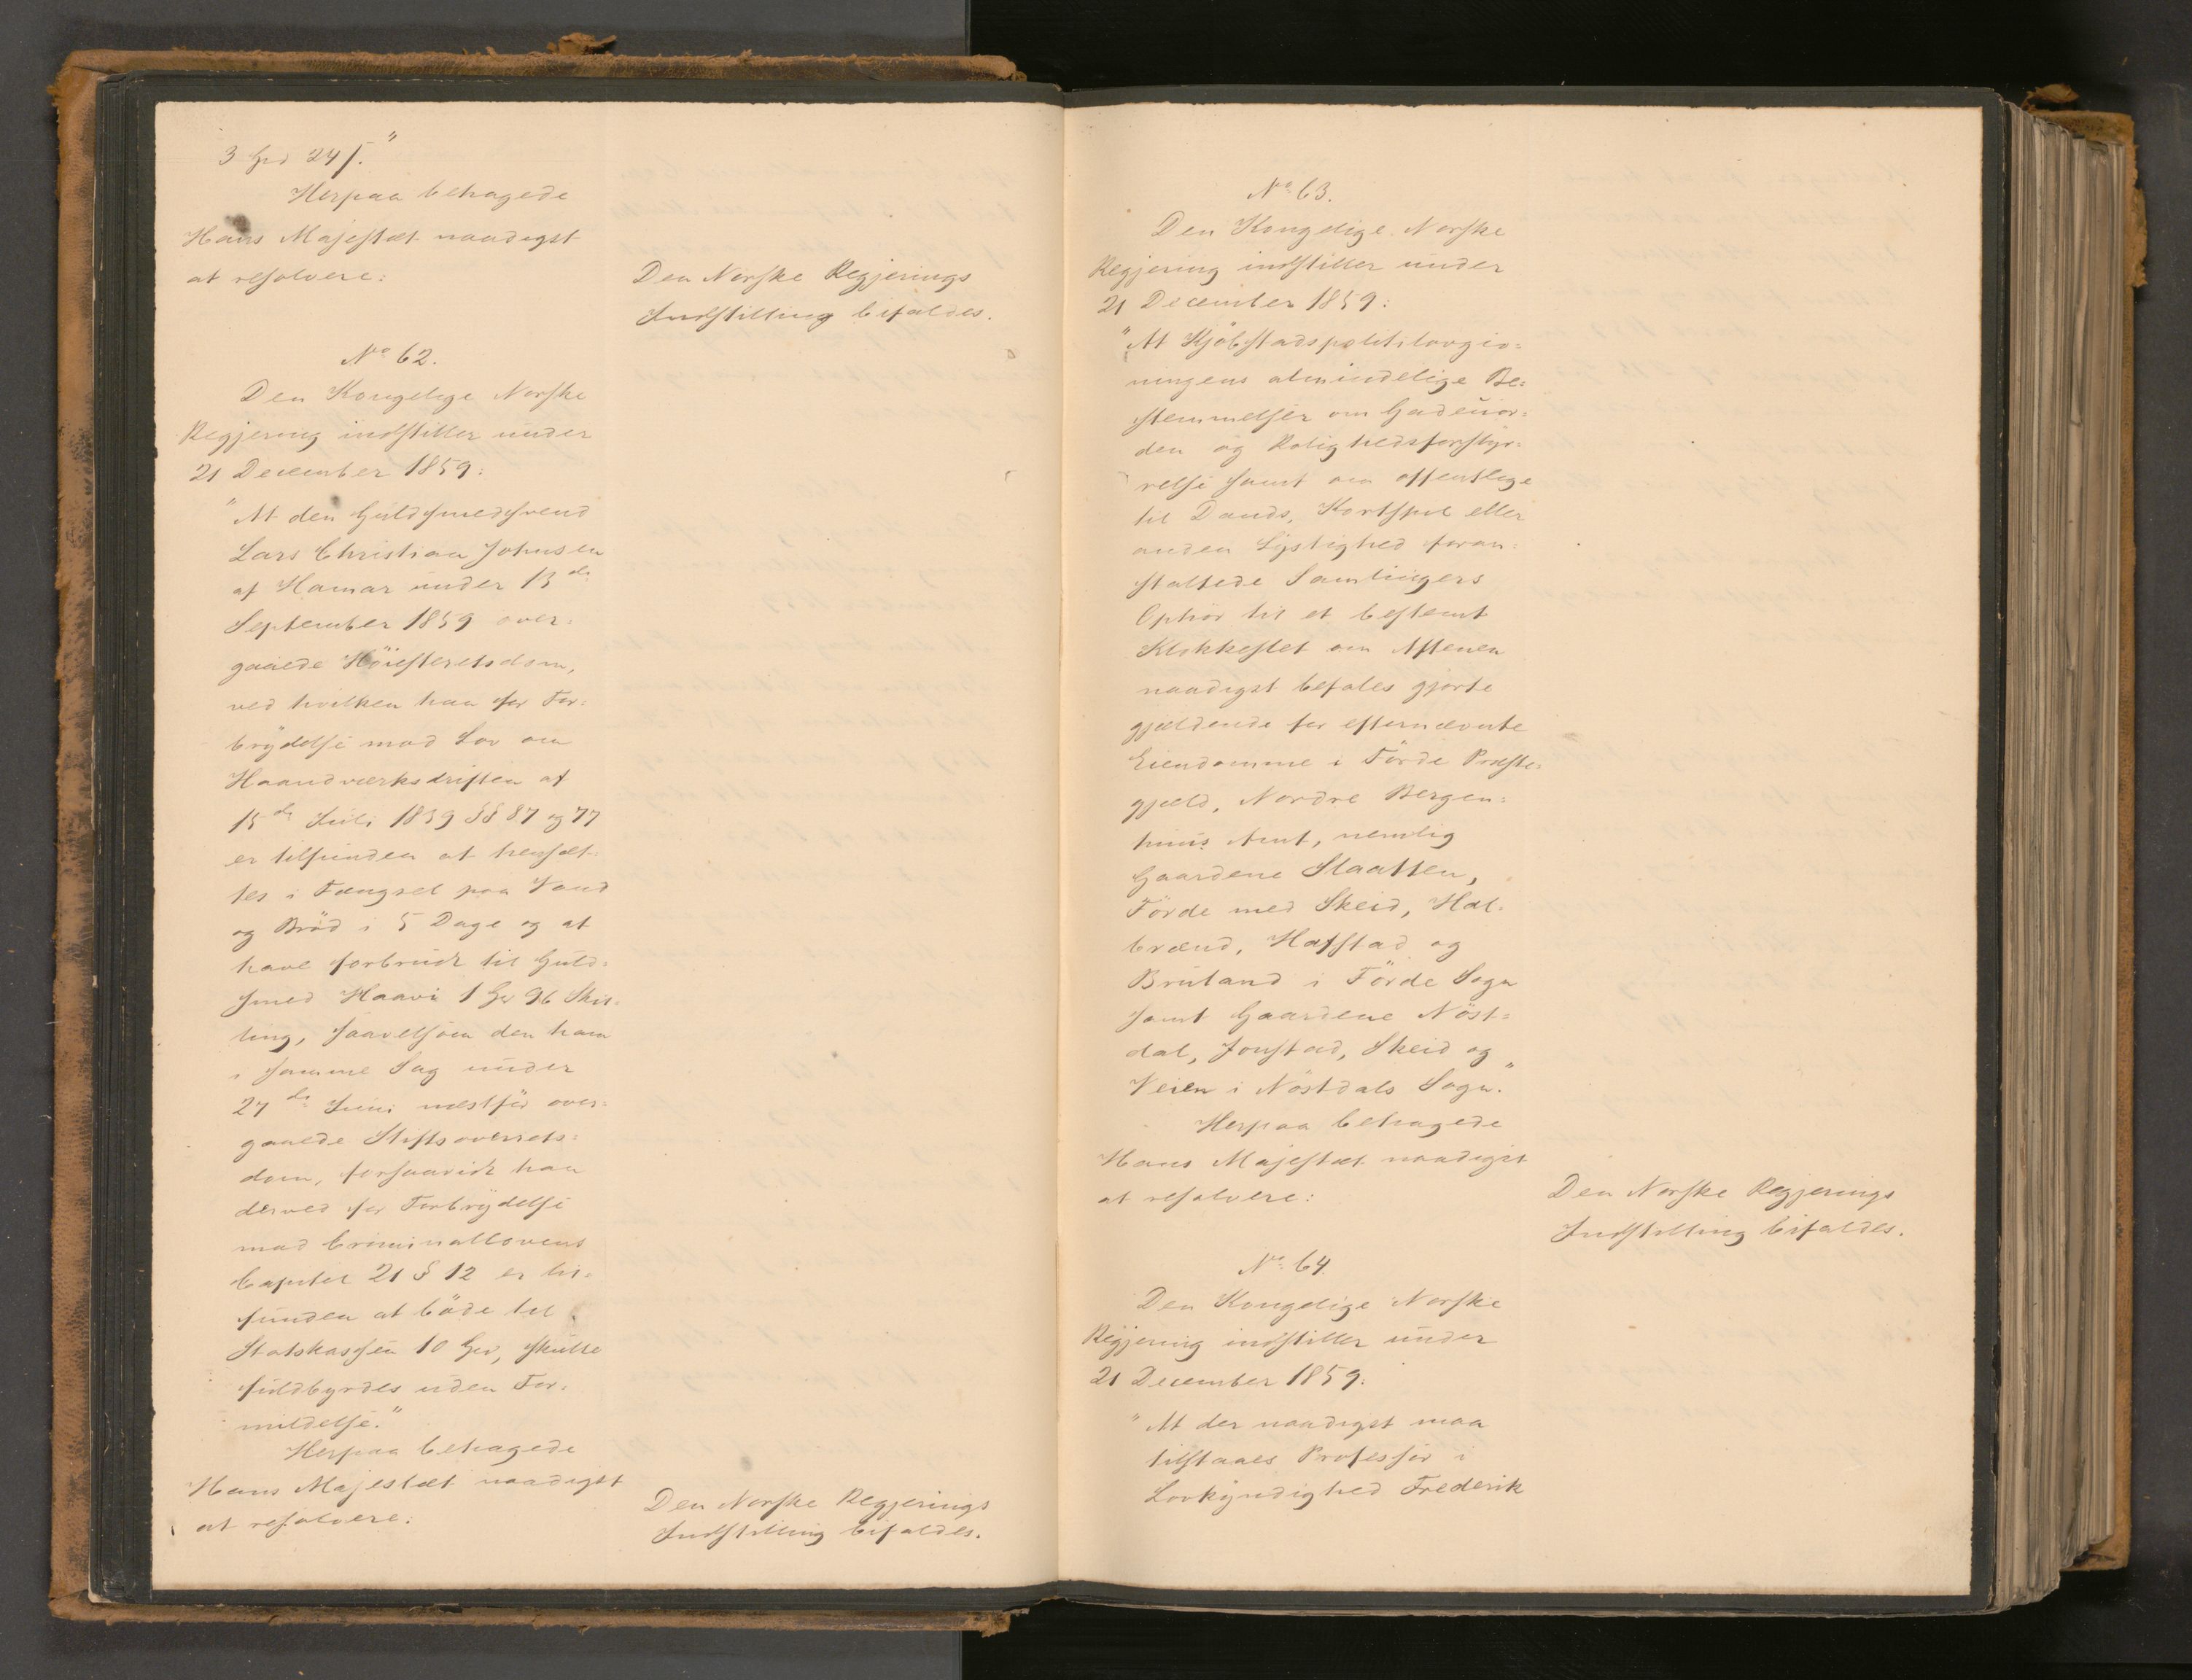 3 24 ſ."
Herpaa behagede
Hans Majeſtæt naadigst
at reſolvere:
Den Norſke Regjerings
Indſtilling bifaldes.
No 62.
Den Kongelige Norſke
Regjering indſtiller under
21 December 1859:
"At den Guldſmedſvend
Lars Chriſtian Johnsen
af Hamar under 13de
September 1859 over-
gaaede Höieſteretsdom,
ved hvilken han for For-
brydelſe mod Lov om
Haandværksdriften af
15de Juli 1839 §§ 87 og 77
er tilfunden at henſæt-
tes i Fængsel paa Vand
og Bröd i 5 Dage og at
have forbrudt til Guld-
ſmed Haavi 1 96 Skil-
ling, ſaavelſom den ham
i ſamme Sag under
27de Juni næstför over-
gaaede Stiftsoverrets-
dom, forſaavidt han
derved for Forbrydelſe
mod Criminallovens
Capitel 21 § 12 er til-
funden at böde til
Statskasſen 10 ſkulle
fuldbyrdes uden For-
mildelſe."
Herpaa behagede
Hans Majestæt naadigst
at reſolvere:
Den Norſke Regjerings
Indſtilling bifaldes.
No 63.
Den Kongelige Norſke
Regjering indſtiller under
21 December 1859:
"At Kjöbſtadspolitilovgiv-
ningens almindelige Be-
ſtemmelſer om Gadeuor-
den og Rolighedsforſtyr-
relſe ſamt om offentlige
til Dands, Kortſpil eller
anden Lyſtighed foran-
ſtaltede Samlingers
Ophör til et beſtemt
Klokkeſlet om Aftenen
naadigst befales gjorte
gjældende for efternævnte
Eiendomme i Förde Præſte-
gjæld, Nordre Bergen-
huus Amt, nemlig
Gaardene Slaatten,
Förde med Skeid, Hal-
brænd, Hafſtad og
Bruland i Förde Sogn
ſamt Gaardene Nöst-
dal, Jonſtad, Skeid og
Veien i Nöstdals Sogn."
Herpaa behagede
Hans Majeſtæt naadigst
at reſolvere:
Den Norſke Regjerings
Indſtilling bifaldes.
No 64
Den Kongelige Norſke
Regjering indſtiller under
21 December 1859:
"At der naadigst maa
tilſtaaes Profesſor i
Lovkyndighed Frederik